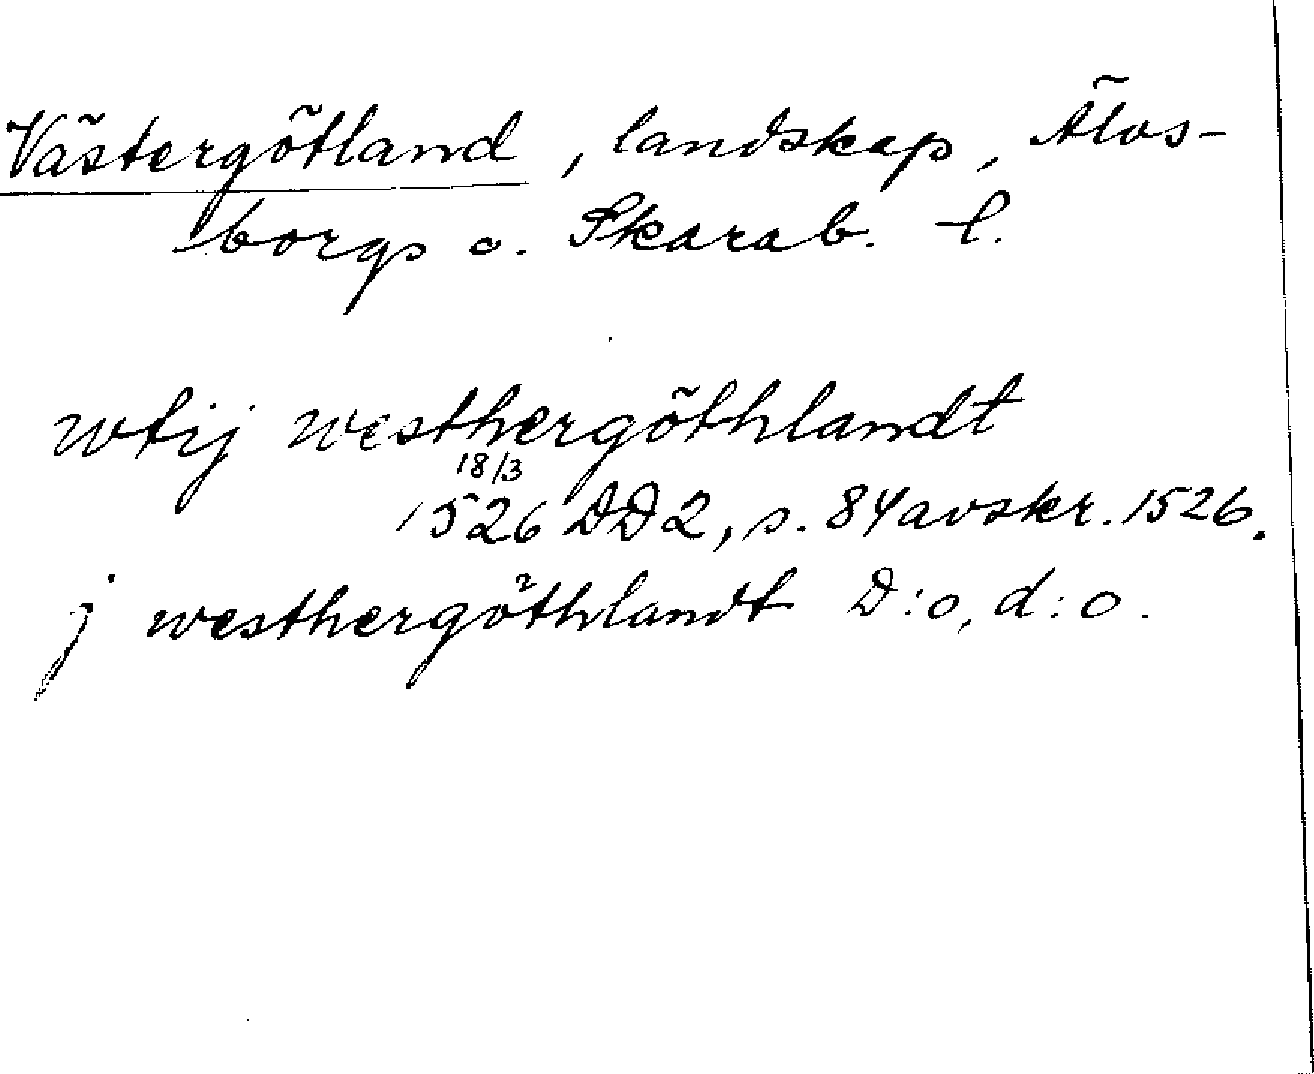 Västergötland, landskap, Älvs-
borgs o. Skarab. l.
wtij westhergöthlandt
18/3
1526 DD2, s. 84 avskr. 1526.
j westhergöthlandt D:o, d:o.